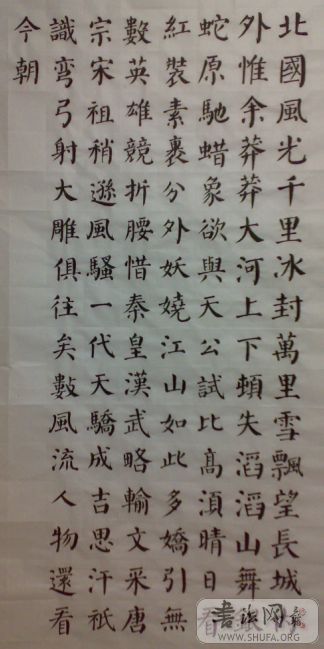 北國風光千里冰封萬里雪飄望長城
外惟余莽莽大河上下頓失滔滔山舞銀
蛇原馳蜡象欲與天公試比高湏晴日看
紅裝素裹分外妖嬈江山如此多嬌引無
數英雄競折腰惜秦皇漢武略輸文采唐
宗宋祖稍遜風騷一代天驕成吉思汗祇
識弯弓射大雕俱往矣數風流人物還看
今朝
书法网
WWW.SHUFA.ORG